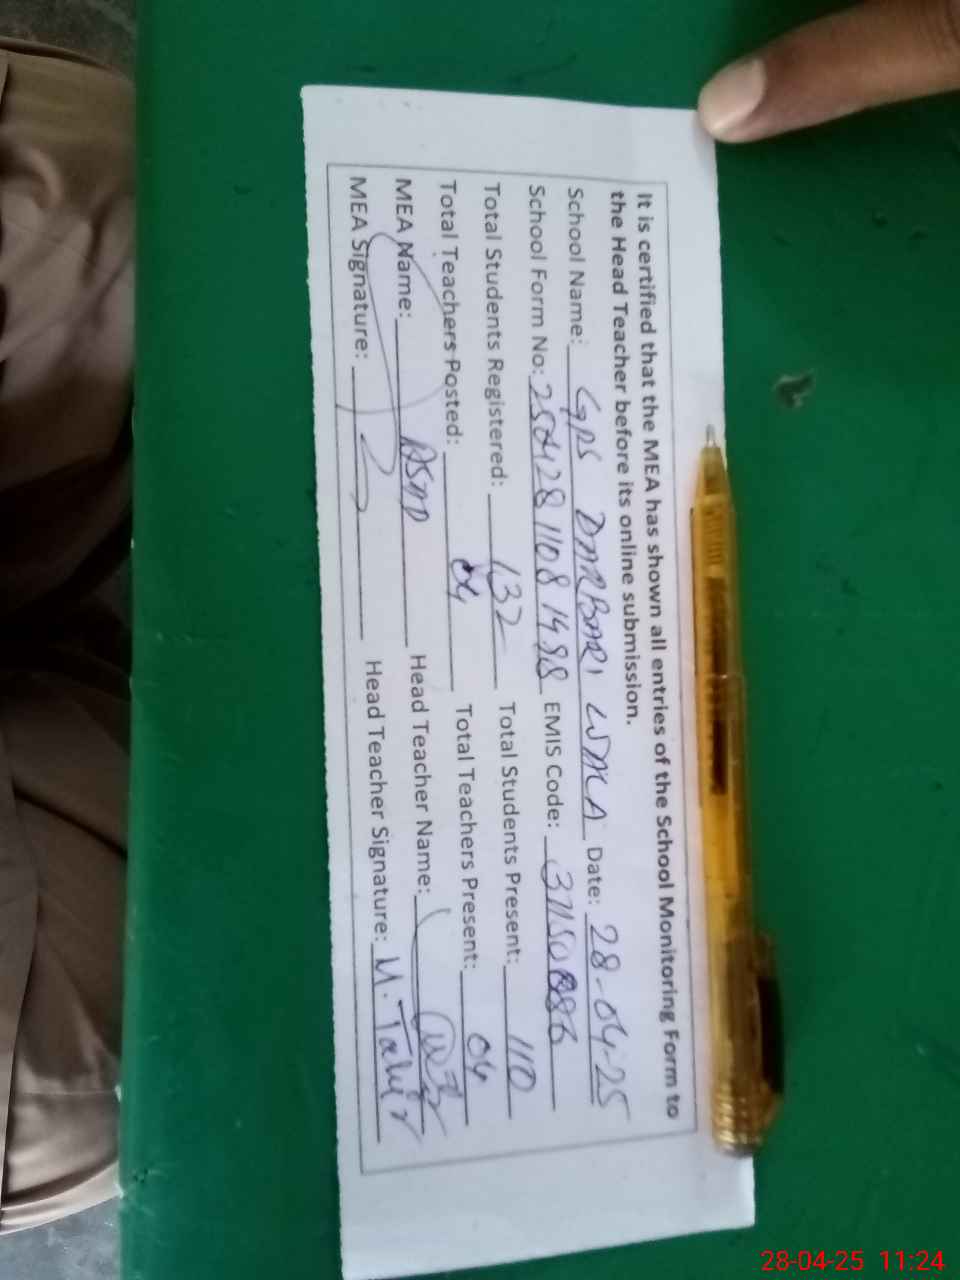 It is certified that the MEA has shown all entries of the School Monitoring Form to
the Head Teacher before its online submission.
School Name: GPS DARBARI WALA Date: 28-04-25
School Form No: 250428 1108 1498 EMIS Code:
Total Students Registered: 132 Total Students Present: 110
Total Teachers Posted: 04 Total Teachers Present: 04
MEA Name: ASAD Head Teacher Name:
MEA Signature: Head Teacher Signature: M. Tahir
28-04-25 11:24